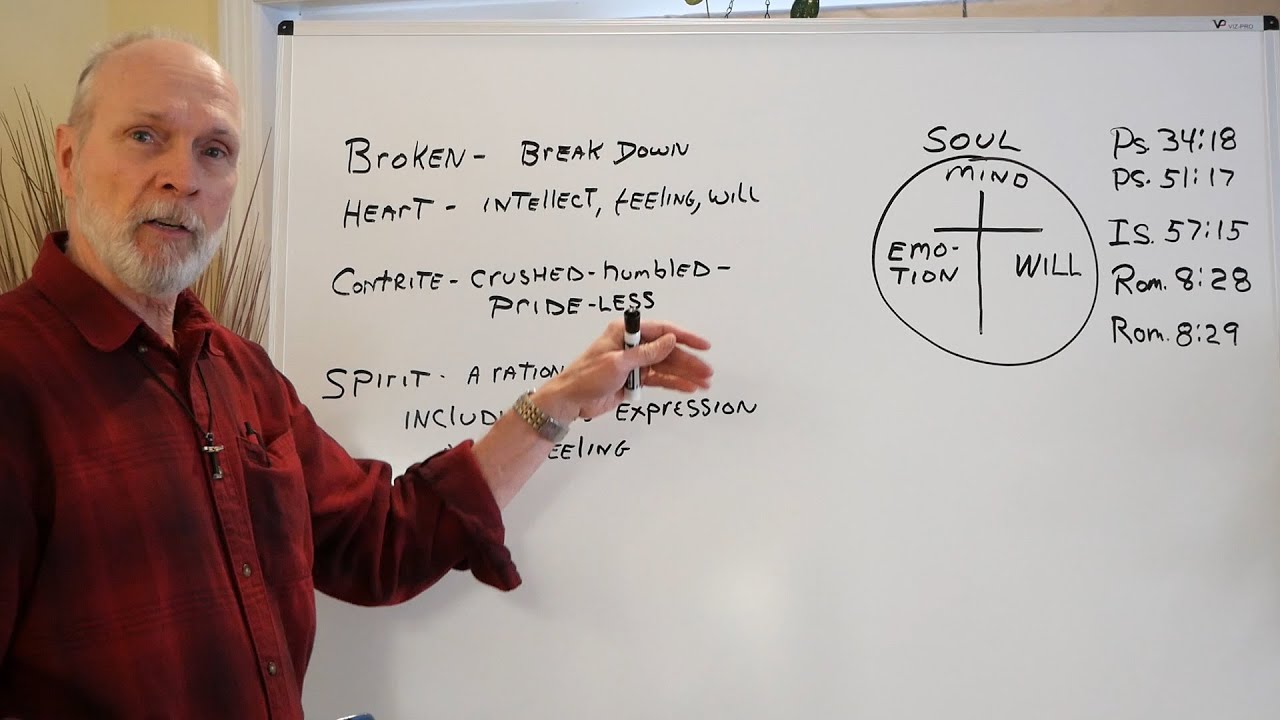 VIZ-PRO
BROKEN - BREAK DOWN
HEART - INTELLECT, FEELING, WILL
CONTRITE - CRUSHED - HUMBLED -
PRIDE-LESS
SPIRIT - A
EXPRESSION
SOUL
MIND
EMO-
TION
WILL
Ps. 34:18
Ps. 51:17
IS. 57:15
Rom. 8:28
Rom. 8:29